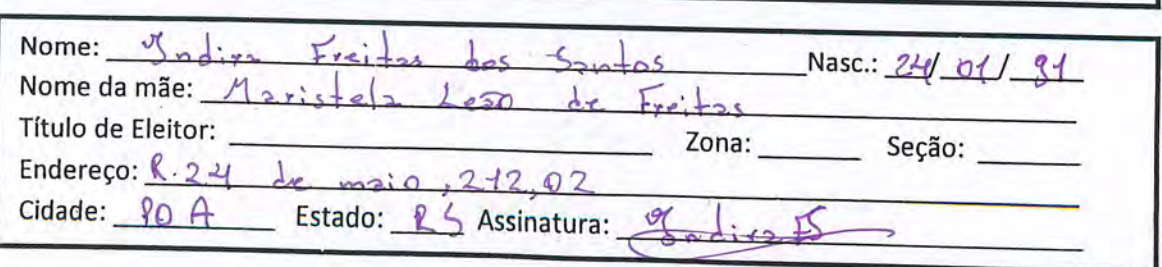 Nome: Indira Freitas dos Santos Nasc.: 24/ 01/ 91
Nome da mãe: Maristela Leão de Freitas
Título de Eleitor: Zona: Seção:
Endereço: R. 24 de maio, 212, 02
Cidade: POA Estado: RS Assinatura: Indira FS